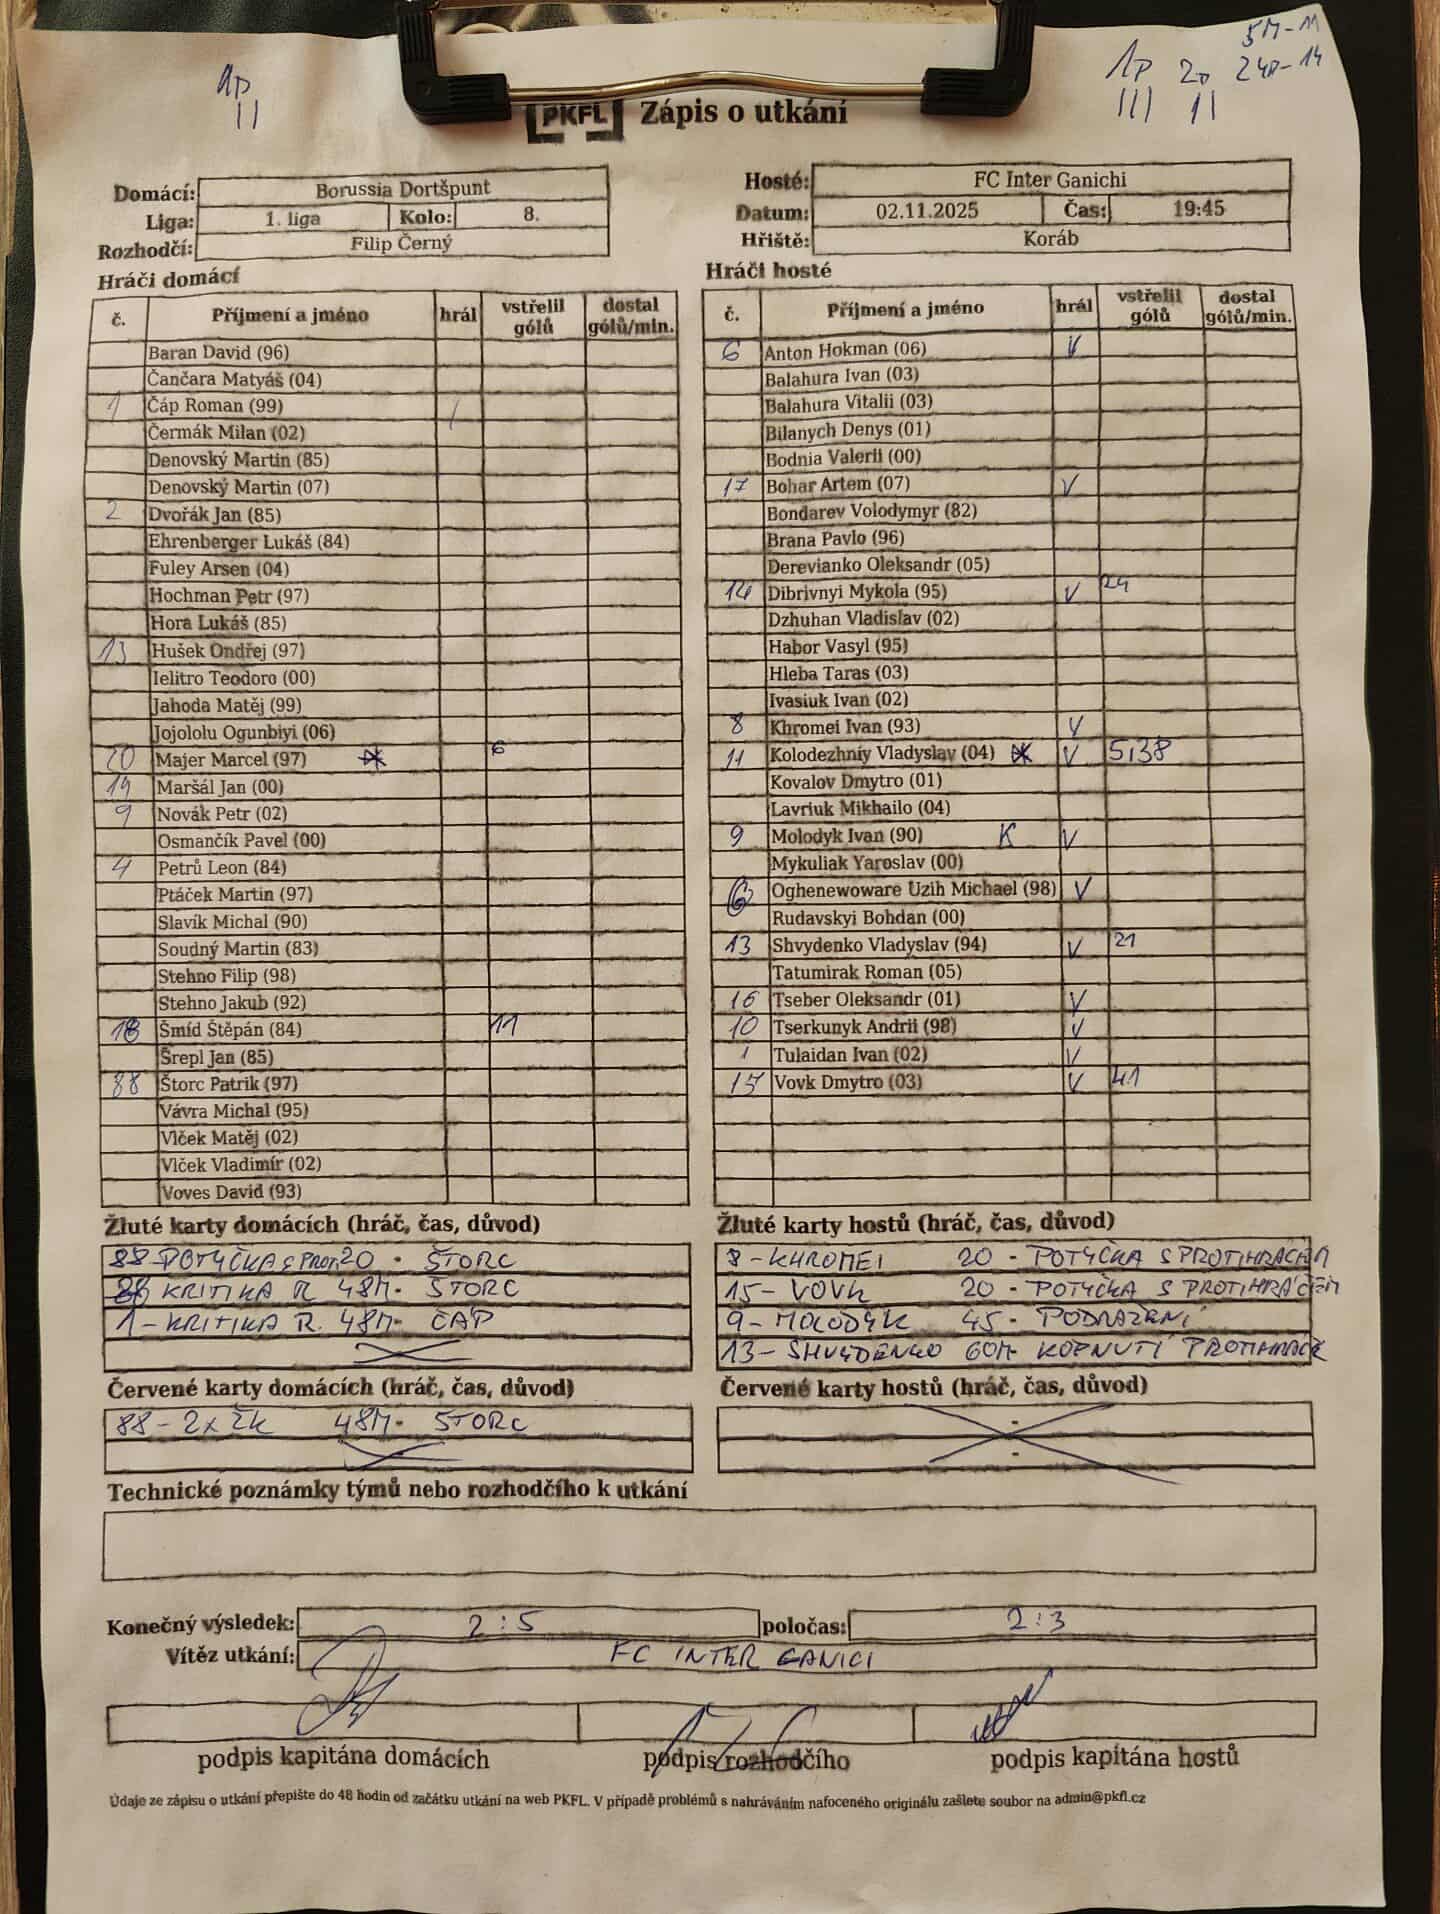 5M-11
1P
1P 2P 24P-14
II
III II
PKFL Zápis o utkání
Domácí: Borussia Dortšpunt
Hosté: FC Inter Ganichi
Liga: 1. liga Kolo: 8.
Datum: 02.11.2025 Čas: 19:45
Rozhodčí: Filip Černý
Hřiště: Koráb
Hráči domácí
č. Příjmení a jméno hrál vstřelil gólů dostal gólů/min.
Baran David (96)
Čančara Matyáš (04)
1 Čáp Roman (99) /
Čermák Milan (02)
Denovský Martin (85)
Denovský Martin (07)
2 Dvořák Jan (85)
Ehrenberger Lukáš (84)
Fuley Arsen (04)
Hochman Petr (97)
Hora Lukáš (85)
13 Hušek Ondřej (97)
Ielitro Teodoro (00)
Jahoda Matěj (99)
Jojololu Ogunbiyi (06)
20 Majer Marcel (97) 6
19 Maršál Jan (00)
9 Novák Petr (02)
Osmančík Pavel (00)
4 Petrů Leon (84)
Ptáček Martin (97)
Slavík Michal (90)
Soudný Martin (83)
Stehno Filip (98)
Stehno Jakub (92)
18 Šmíd Štěpán (84) 11
Šrepl Jan (85)
88 Štorc Patrik (97)
Vávra Michal (95)
Vlček Matěj (02)
Vlček Vladimír (02)
Voves David (93)
Hráči hosté
č. Příjmení a jméno hrál vstřelil gólů dostal gólů/min.
6 Anton Hokman (06) V
Balahura Ivan (03)
Balahura Vitalii (03)
Bilanych Denys (01)
Bodnia Valerii (00)
17 Bohar Artem (07) V
Bondarev Volodymyr (82)
Brana Pavlo (96)
Derevianko Oleksandr (05)
14 Dibrivnyi Mykola (95) V 24
Dzhuhan Vladislav (02)
Habor Vasyl (95)
Hleba Taras (03)
Ivasiuk Ivan (02)
8 Khromei Ivan (93) V
11 Kolodezhniy Vladyslav (04) V 5,38
Kovalov Dmytro (01)
Lavriuk Mikhailo (04)
9 Molodyk Ivan (90) K V
Mykuliak Yaroslav (00)
Oghenewoware Uzih Michael (98) V
Rudavskyi Bohdan (00)
13 Shvydenko Vladyslav (94) V 21
Tatumirak Roman (05)
16 Tseber Oleksandr (01) V
10 Tserkunyk Andrii (98) V
1 Tulaidan Ivan (02) V
15 Vovk Dmytro (03) V 41
Žluté karty domácích (hráč, čas, důvod)
88-POTYČKA S PROT. 20 - ŠTORC
KRITIKA R 48M- ŠTORC
1-KRITIKA R. 48M- ČÁP
Žluté karty hostů (hráč, čas, důvod)
8-KHROMEI 20 - POTYČKA S PROTIHRÁČEM
15-VOVK 20 - POTYČKA S PROTIHRÁČEM
9-MOLODYK 45 - PODRAŽENÍ
13-SHVYDENKO 60M- KOPNUTÍ PROTIHRÁČE
Červené karty domácích (hráč, čas, důvod)
88-2x ŽK 48M- ŠTORC
Červené karty hostů (hráč, čas, důvod)
-
-
Technické poznámky týmů nebo rozhodčího k utkání
Konečný výsledek: 2:5 poločas: 2:3
Vítěz utkání: FC INTER GANICI
podpis kapitána domácích podpis rozhodčího podpis kapitána hostů
Údaje ze zápisu o utkání přepište do 48 hodin od začátku utkání na web PKFL. V případě problémů s nahráváním nafoceného originálu zašlete soubor na admin@pkfl.cz